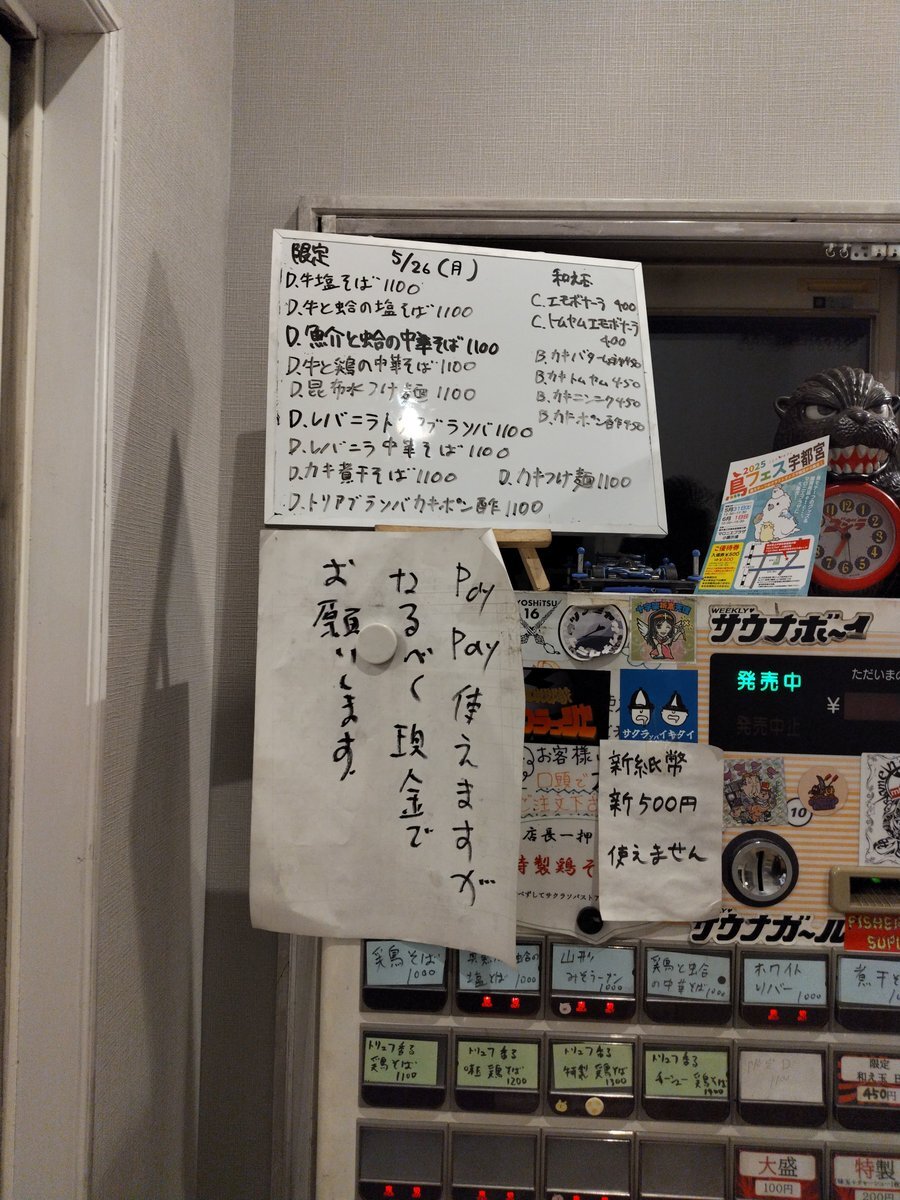 限定
5/26(月)
D.牛塩そば 1100
D.牛と蛤の塩そば 1100
D.魚介と蛤の中華そば 1100
D.牛と鶏の中華そば 1100
D.昆布水つけ麺 1100
D.レバニラトリアブランバ 1100
D.レバニラ中華そば 1100
D.カキ煮干そば 1100
D.カキつけ麺 1100
D.トリアブランバカキポン酢 1100
和え玉
C.エモボナーラ 400
C.トムヤムエモボナーラ
400
B.カキバター 450
B.カキトムヤム 450
B.カキニンニク 450
B.カキポン酢 450
Pay Pay 使えますが
なるべく現金で
お願いします。
2025
鳥フェス宇都宮
ご優待券
YOSHiTSU
16
サクランバイキタイ
お客様
口頭で
ご注文下さ
店長一押
特製鶏そ
新紙幣
新500円
使えません
WEEKLY
サウナボ〜イ
発売中
ただいまの
発売中止
¥
10
サウナガ〜ル
FISHER
SUPL
鶏そば
1000
塩そば 1000
山形
みそラーメン
1000
鶏と蛤
の中華そば 1000
ホワイト
リバー
1000
煮干そ
トリュフ香る
鶏そば
1100
トリュフ香る
味玉鶏そば
1200
トリュフ香る
特製鶏そば
1300
トリュフ香る
チャーシュー鶏そば
1400
限定D
1100
限定
和え玉 B
450円
大盛
100円
特製
200円